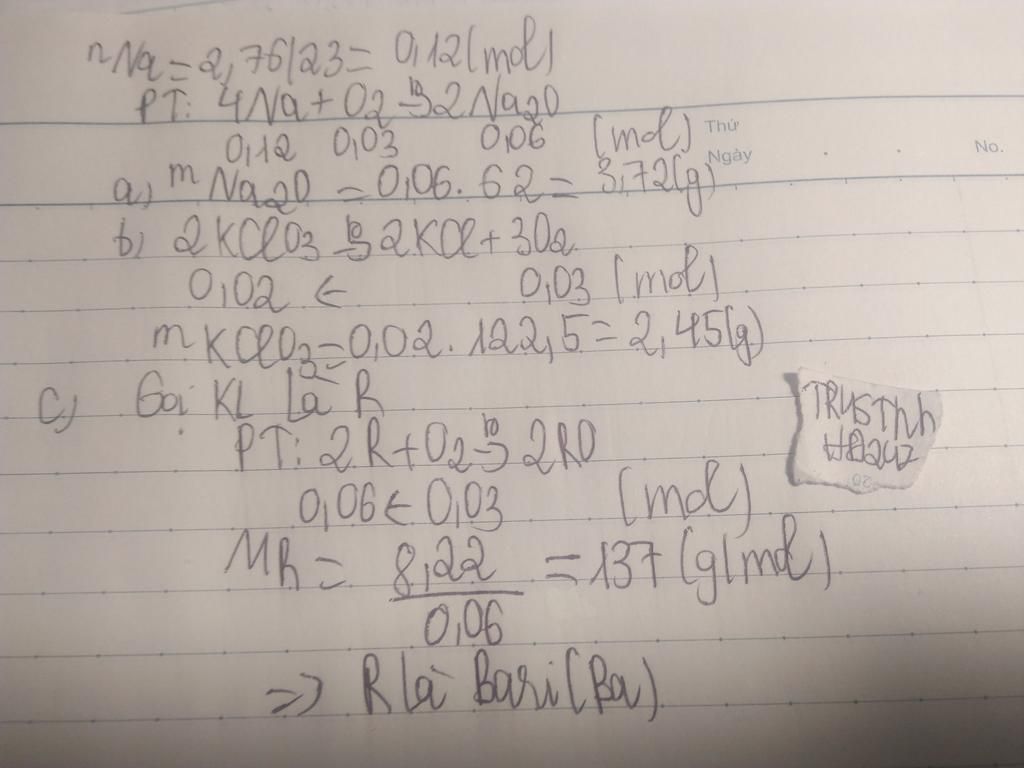 nNa = 2,76/23 = 0,12 (mol)
PT: 4Na + O2 t°→ 2Na2O
0,12 0,03 0,06 (mol)
Thứ
Ngày
No.
a) mNa2O = 0,06 . 62 = 3,72 (g)
b) 2KClO3 t°→ 2KCl + 3O2
0,02 ← 0,03 (mol)
mKClO3 = 0,02 . 122,5 = 2,45 (g)
c) Gọi KL là R
PT: 2R + O2 t°→ 2RO
0,06 ← 0,03 (mol)
MR = 8,22/0,06 = 137 (g/mol)
=> R là Bari (Ba)